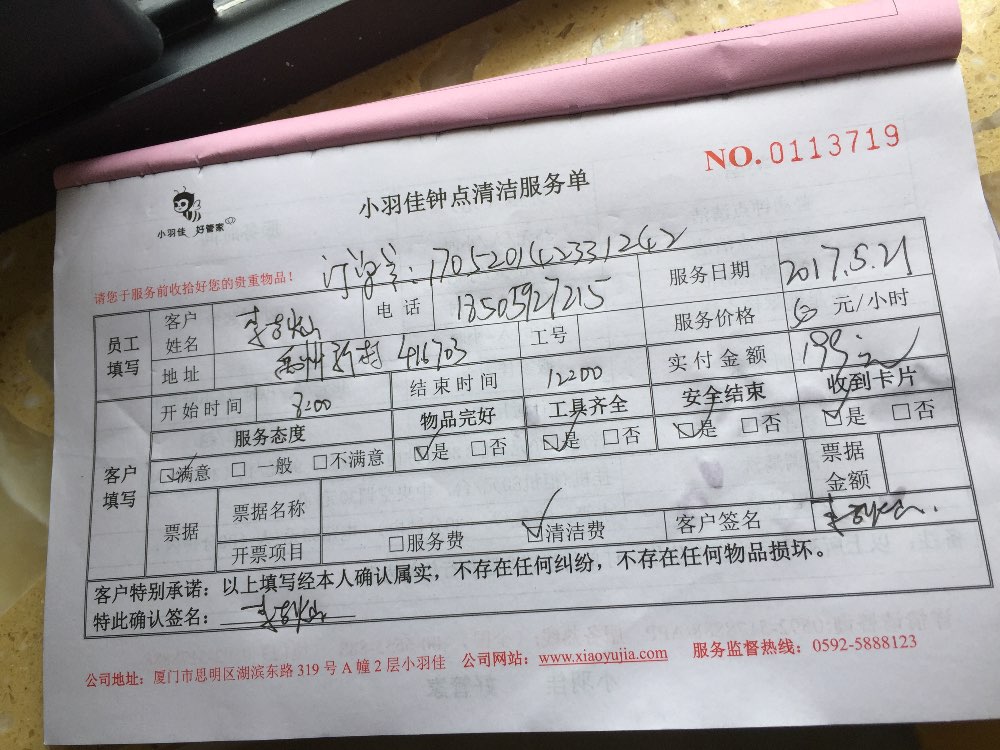 NO. 0113719
小羽佳 好管家
小羽佳钟点清洁服务单
请您于服务前收拾好您的贵重物品！
订单号：170520142331242
员工填写 客户姓名 电话 18505927215 服务日期 2017.5.21
地址 新村 416703 工号 服务价格 元/小时
开始时间 8:00 结束时间 12:00 实付金额 199元
客户填写 服务态度 物品完好 工具齐全 安全结束 收到卡片
☑满意 □一般 □不满意 ☑是 □否 ☑是 □否 ☑是 □否 ☑是 □否
票据 票据名称 票据金额
开票项目 □服务费 ☑清洁费 客户签名
客户特别承诺：以上填写经本人确认属实，不存在任何纠纷，不存在任何物品损坏。
特此确认签名：
公司地址：厦门市思明区湖滨东路 319 号 A 幢 2 层小羽佳 公司网站：www.xiaoyujia.com 服务监督热线：0592-5888123